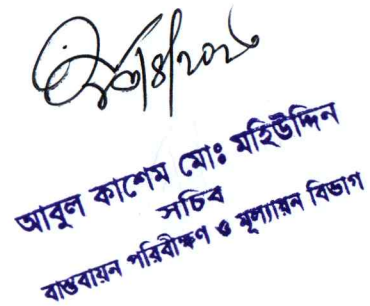 আবুল কাশেম মোঃ মহিউদ্দিন
সচিব
বাস্তবায়ন পরিবীক্ষণ ও মূল্যায়ন বিভাগ